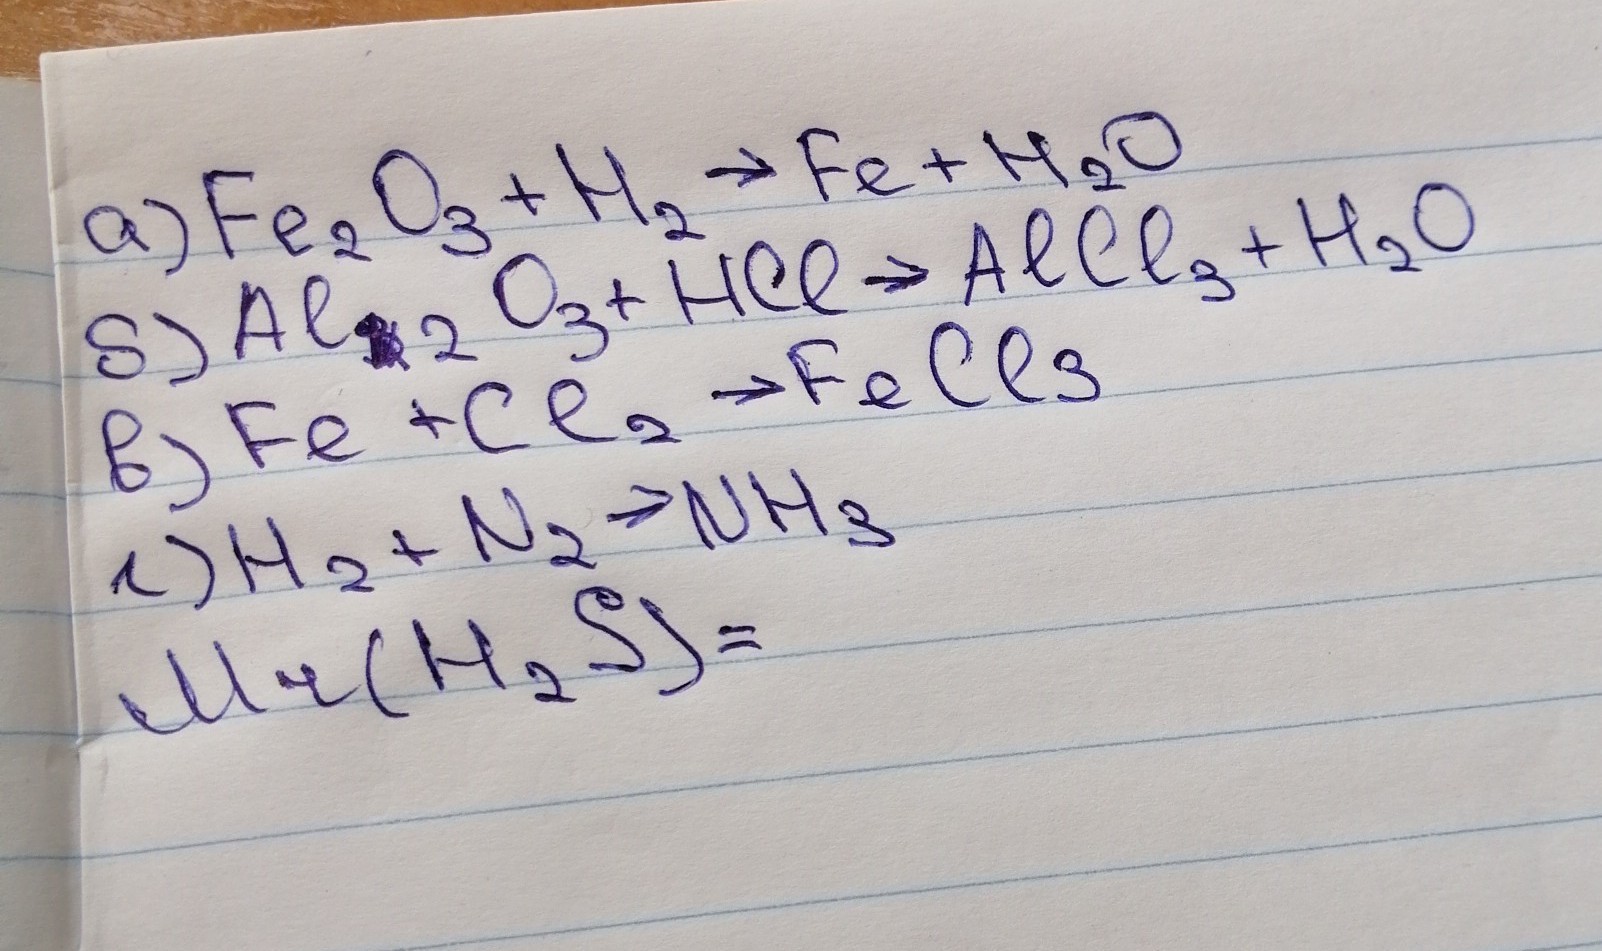 а) Fe₂O₃ + H₂ → Fe + H₂O
б) Al₂O₃ + HCl → AlCl₃ + H₂O
в) Fe + Cl₂ → FeCl₃
г) H₂ + N₂ → NH₃
Mr(H₂S) =